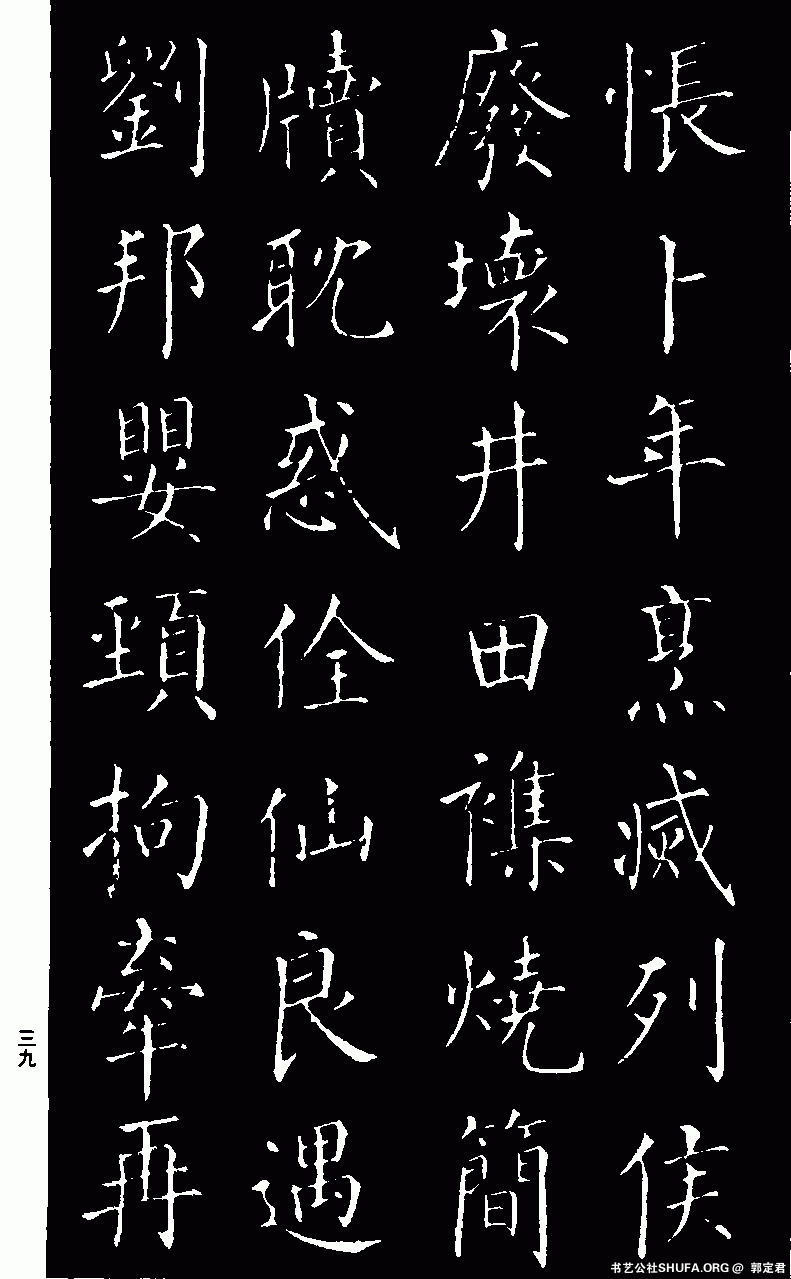 悵卜年烹滅列侯
廢壞井田襍燒簡
牘耽惑佺仙良遇
劉邦嬰頸拘牽再
三九
书艺公社SHUFA.ORG @ 郭定君